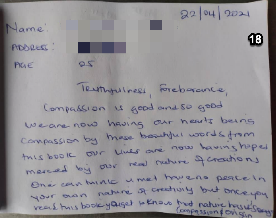 22/04/2021
18
Name:
ADDRESS:
AGE 25
Truthfulness, Foreberance,
Compassion is good and so good
We are now having our hearts being
compassion by these beautiful words from
this book our lives are now having hopes
merced by our real nature of creations
One can think u met have no peace in
your own nature of creativity but once you
read this book you get to know that nature has
Compassions origin